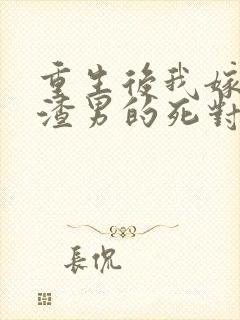 重生後我嫁
渣男的死對
長侃